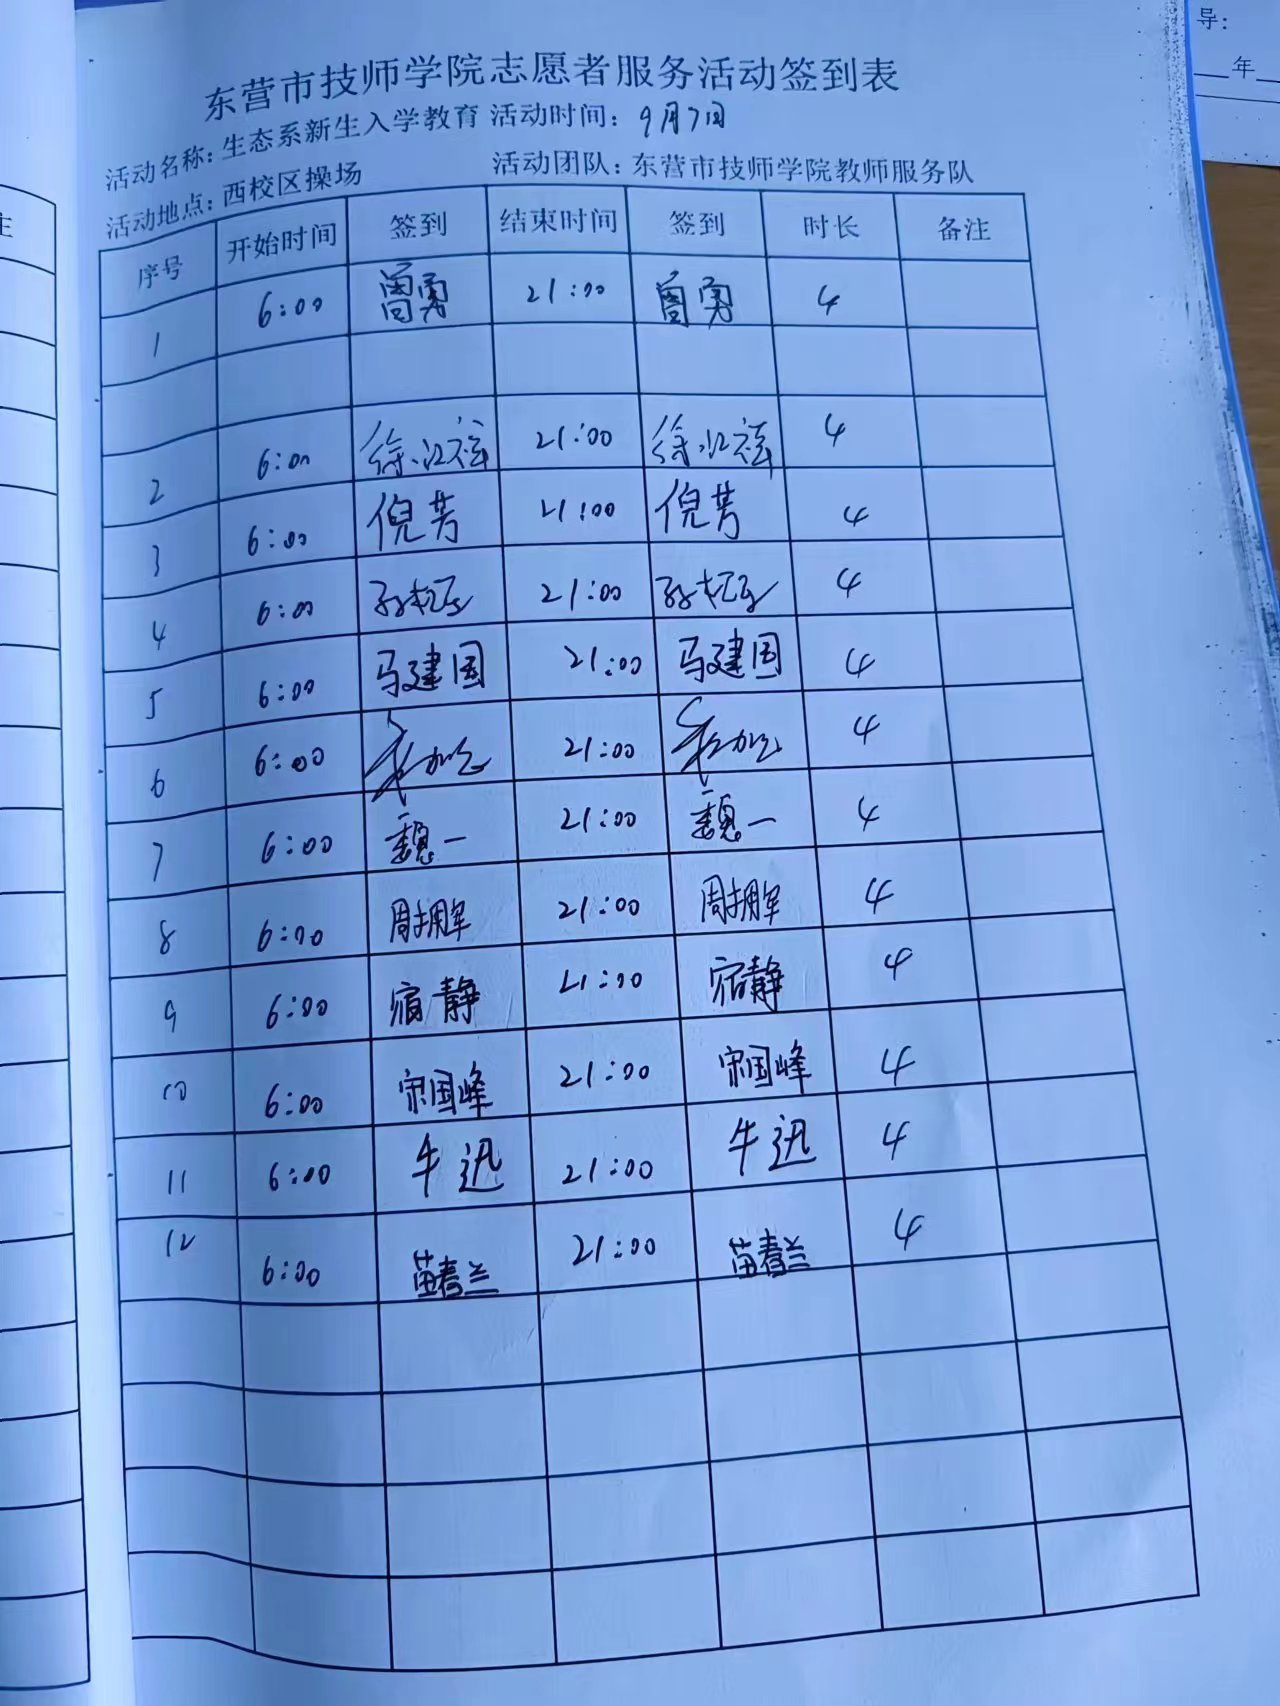 导:
年
主
东营市技师学院志愿者服务活动签到表
活动名称: 生态系新生入学教育 活动时间: 9月7日
活动地点: 西校区操场 活动团队: 东营市技师学院教师服务队
序号 开始时间 签到 结束时间 签到 时长 备注
1 6:00 曾勇 21:00 曾勇 4
2 6:00 徐 21:00 徐 4
3 6:00 倪芳 21:00 倪芳 4
4 6:00 21:00 4
5 6:00 马建国 21:00 马建国 4
6 6:00 21:00 4
7 6:00 魏一 21:00 魏一 4
8 6:00 周拥军 21:00 周拥军 4
9 6:00 宿静 21:00 宿静 4
10 6:00 宋国峰 21:00 宋国峰 4
11 6:00 牛迅 21:00 牛迅 4
12 6:00 苗春兰 21:00 苗春兰 4